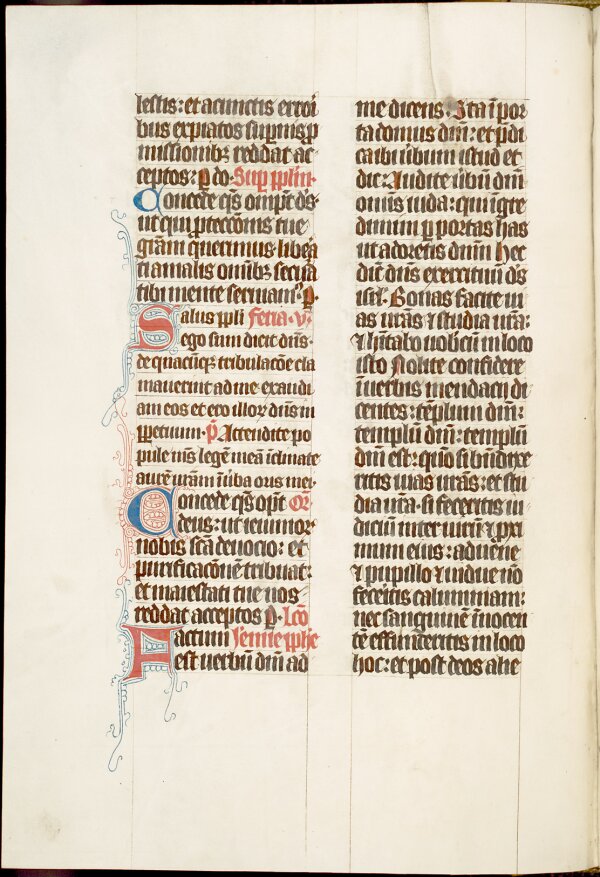 lestis: et acunctis errori
bus expiatos sup̄nis p̄
missionibꝫ reddat ac
ceptos: ꝑ do. Sup pplm̄.
Concede q̄s om̄pt̄ ds̄
ut qui ꝓtecc̄onis tue
grām querimus. liberᷓ
ti amalis om̄ibꝫ secura
tibi mente seruiam᷒. ꝑ.
Salus ppli feria. v.
ego sum dicit dn̄s.
de quacūqꝫ tribulac̄oe cla
mauerint ad me exaudi
am eos et ero illoꝝ dn̄s in
ꝑpetuum. p̄ Attendite po
pule m̄s legē meā īclinate
aurē urām ī ūba oris mei.
Concede q̄s op̄t Or̄
deus: ut ieiunioꝝ
nobis sc̄a deuocio: et
purificac̄onē tribuat:
et maiestati tue nos
reddat acceptos ꝑ. Lc̄o
Factum Jemie ꝓphe
est uerbū dn̄i ad
me dicens: Sta ī por
ta domus dn̄i: et p̄di
ca ibi ūbum istud et
dic: Audite ūbū dn̄i
omis iuda: qui īgre
dimini ꝑ portas has
ut adoretis dn̄m hec
dic̄ dn̄s exercituū ds̄
isrl̄. Bonas facite ui
as urās ⁊ studia urā:
⁊ hītabo uobiscū in loco
isto Nolite confidere
ī uerbis mendacij di
centes: tēplum dn̄i:
templū dn̄i: templū
dn̄i est: qm̄ si bn̄ dixe
ritis uias urās: et stu
dia urā. si feceritis iu
diciū inter uirū ⁊ pxi
mum eius: aduene
⁊ pupillo ⁊ uidue nō
feceitis calumniam:
nec sanguinē īnocen
tē effunderitis in loco
hoc: et post deos alie